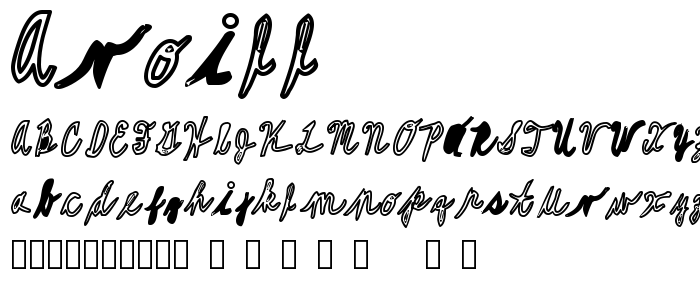 Avoill
ABCDEFGHIJKLMNOPQRSTUVWXYZ
abcdefghijklmnopqrstuvwxyz